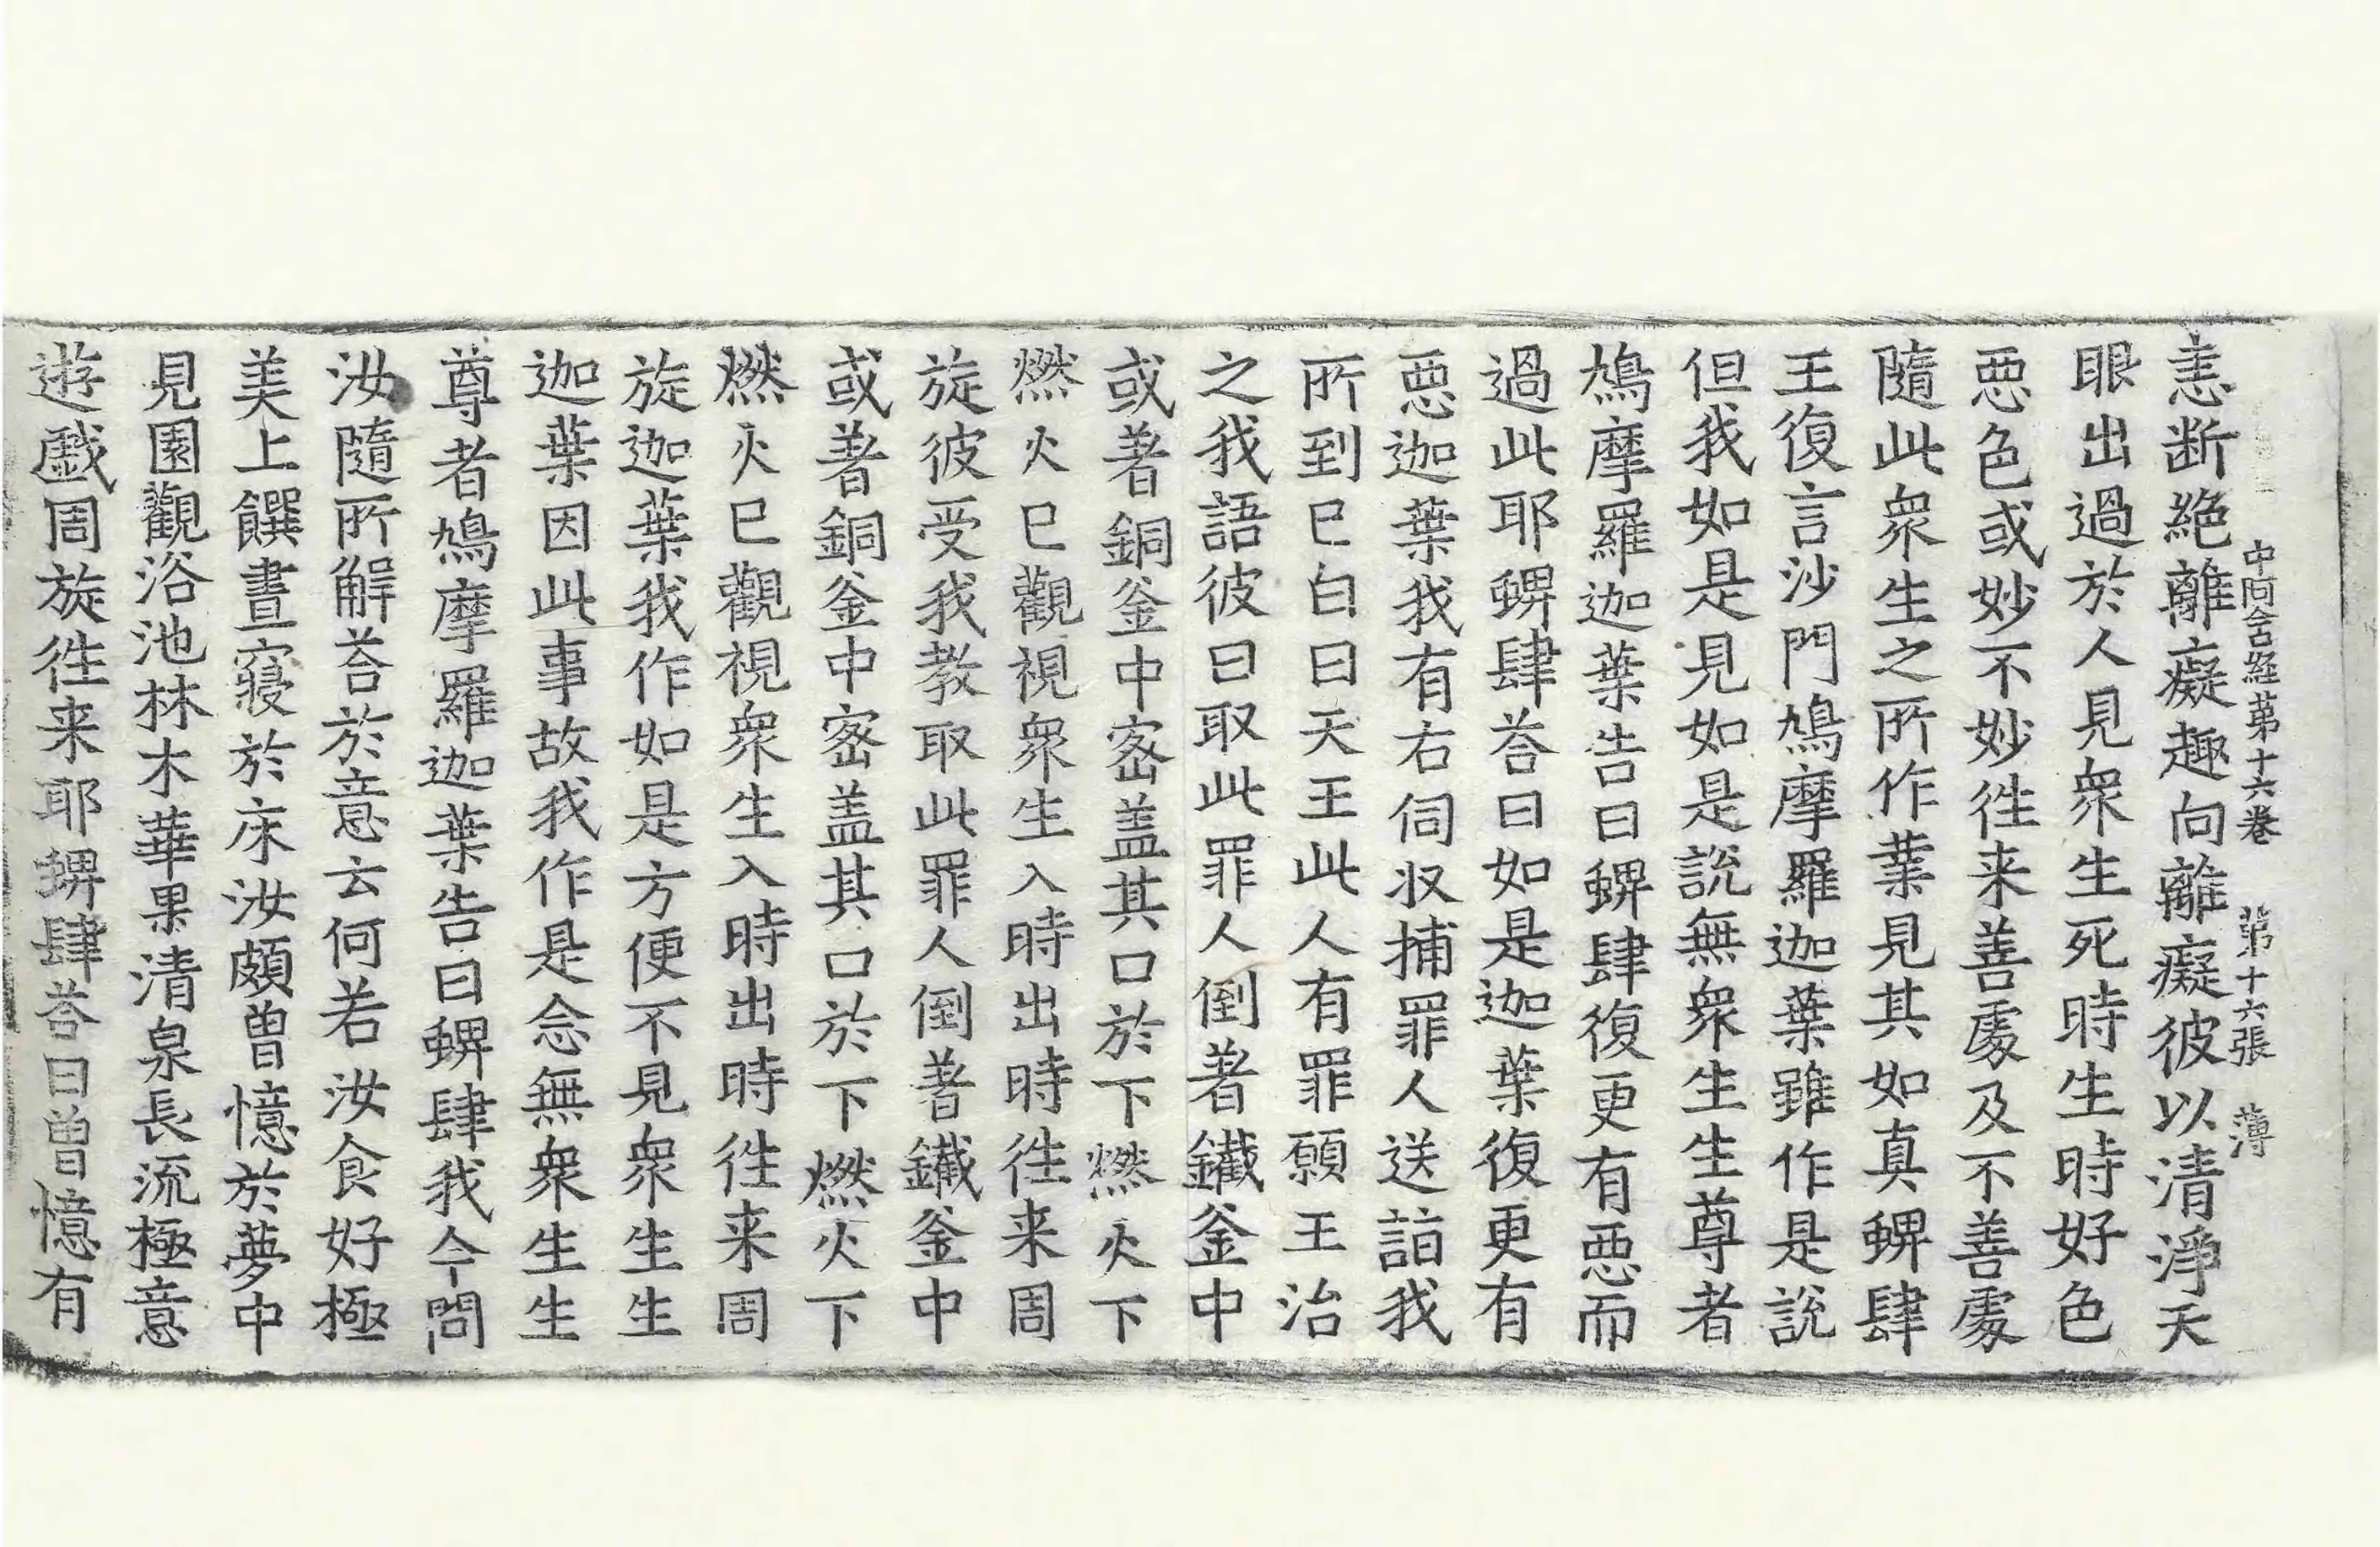 中阿含経第十六巻 第十六張 薄
恚断絶離癡趣向離癡彼以清淨天
眼出過於人見衆生死時生時好色
惡色或妙不妙徃来善處及不善處
隨此衆生之所作業見其如真蜱肆
王復言沙門鳩摩羅迦葉雖作是説
但我如是見如是説無衆生生尊者
鳩摩羅迦葉告曰蜱肆復更有惡而
過此耶蜱肆荅曰如是迦葉復更有
惡迦葉我有右伺収捕罪人送詣我
所到已白曰天王此人有罪願王治
之我語彼曰取此罪人倒著鐵釜中
或著銅釜中宻盖其口於下燃火下
燃火已觀視衆生入時出時徃来周
旋彼受我教取此罪人倒著鐵釜中
或著銅釜中宻盖其口於下燃火下
燃火已觀視衆生入時出時徃来周
旋迦葉我作如是方便不見衆生生
迦葉因此事故我作是念無衆生生
尊者鳩摩羅迦葉告曰蜱肆我今問
汝隨所解荅於意云何若汝食好極
美上饌晝寢於床汝頗曾憶於夢中
見園觀浴池林木華果清泉長流極意
遊戯周旋徃来耶蜱肆荅曰曾憶有